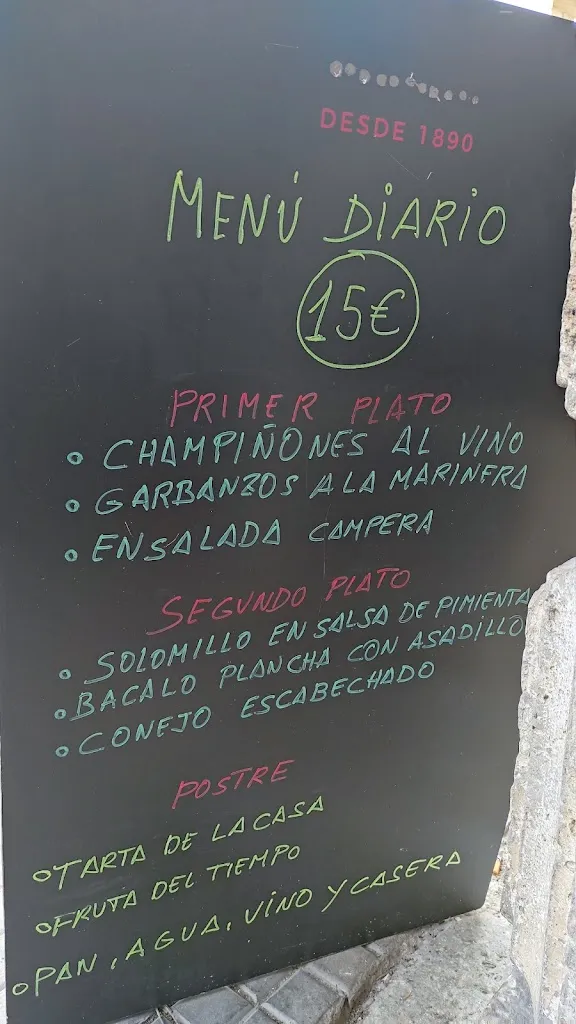 DESDE 1890
MENÚ DIARIO
15€
PRIMER PLATO
CHAMPIÑONES AL VINO
GARBANZOS A LA MARINERA
ENSALADA CAMPERA
SEGUNDO PLATO
SOLOMILLO EN SALSA DE PIMIENTA
BACALO PLANCHA CON ASADILLO
CONEJO ESCABECHADO
POSTRE
TARTA DE LA CASA
FRUTA DEL TIEMPO
PAN, AGUA, VINO Y CASERA